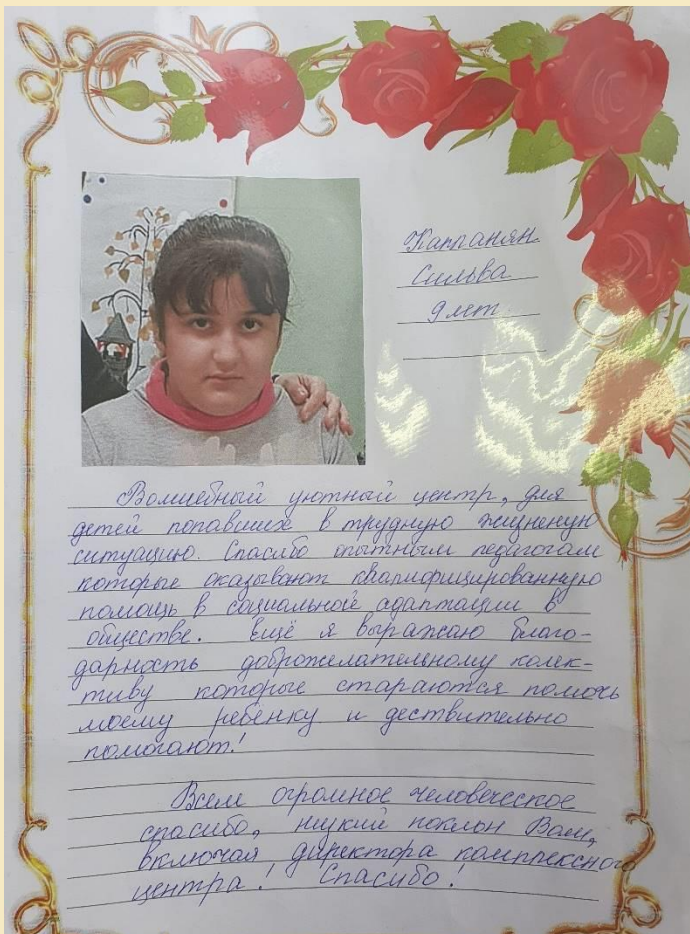 Каппанян
Сильва
9 лет
Волшебный уютный центр, для
детей попавших в трудную жизненую
ситуацию. Спасибо опытным педагогам
которые оказывают квалифицированную
помощь в социальной адаптации в
обществе. Ещё я выражаю благо-
дарность доброжелательному колек-
тиву которые стараются помочь
моему ребёнку и дествительно
помогают!
Всем огромное человеческое
спасибо, низкий поклон Вам,
включая директора комплексного
центра! Спасибо!